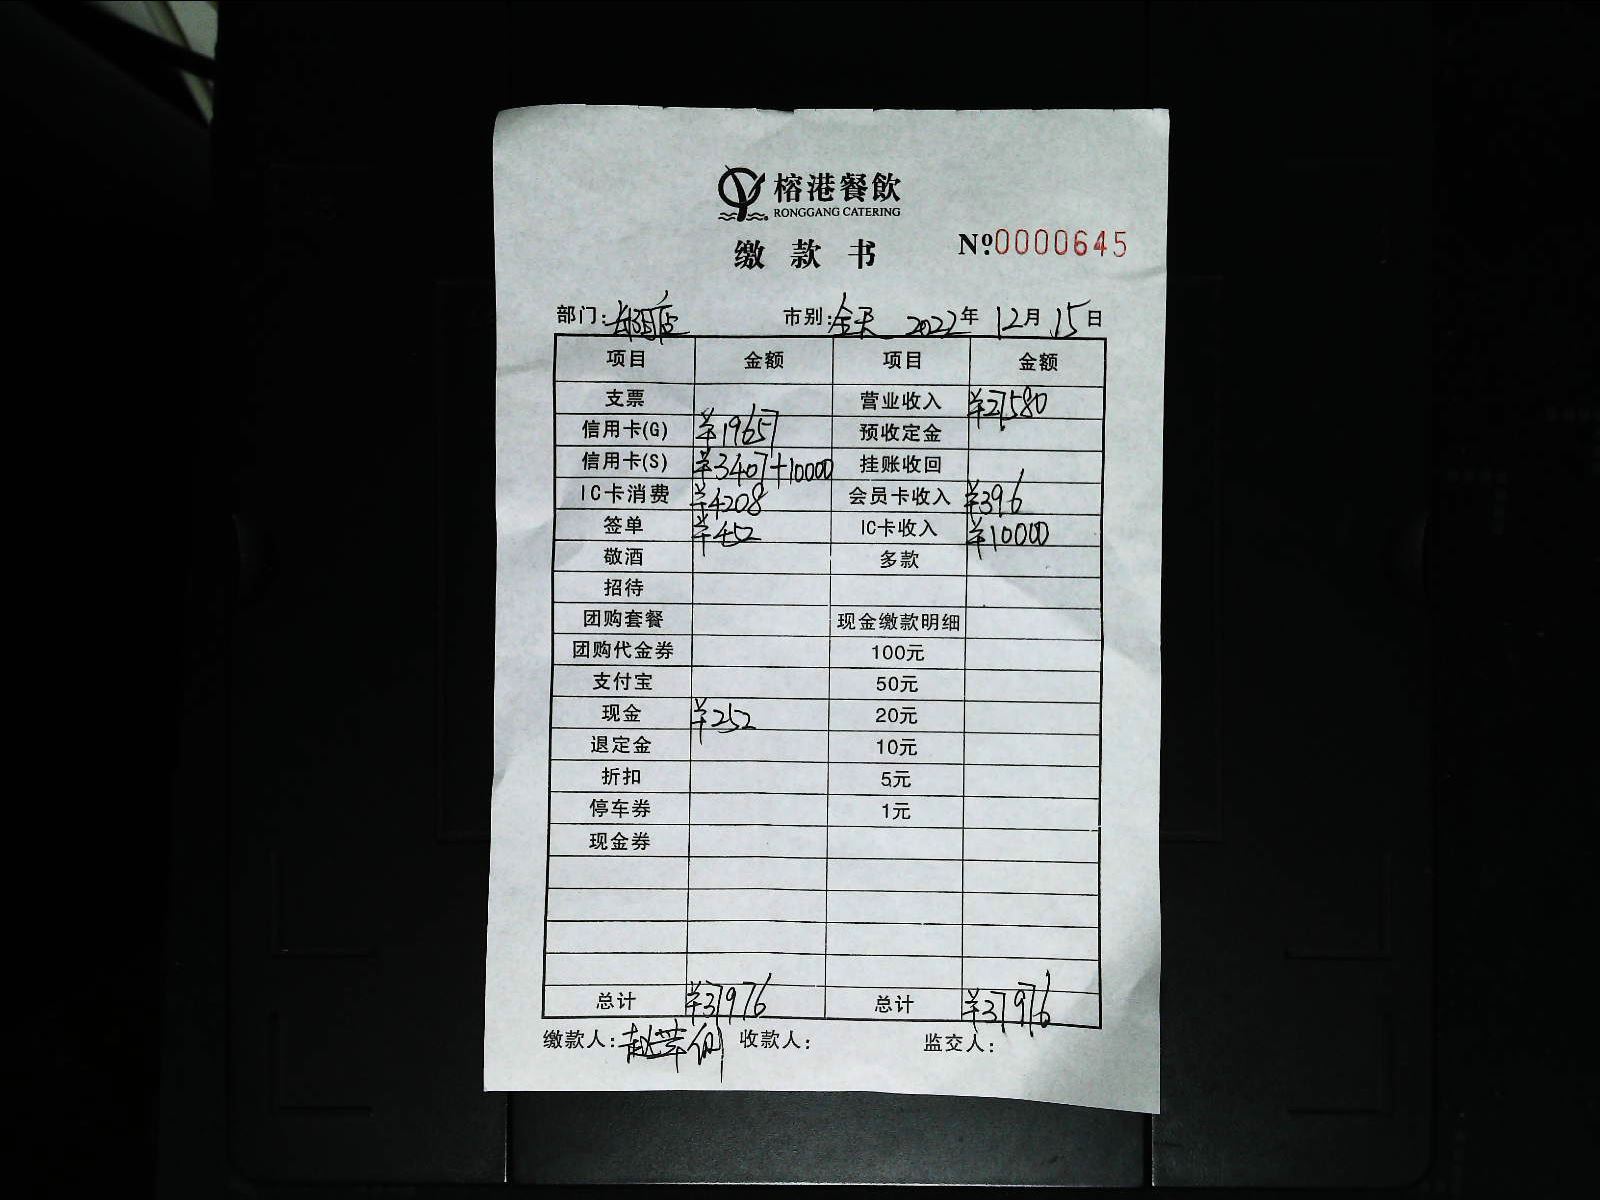 榕港餐飲
RONGGANG CATERING
缴款书 №0000645
部门: 市别:全天 2022年 12月 15日
项目 金额 项目 金额
支票 营业收入 ¥27580
信用卡(G) ¥19657 预收定金
信用卡(S) ¥3407+10000 挂账收回
IC卡消费 ¥4208 会员卡收入 ¥396
签单 ¥452 IC卡收入 ¥10000
敬酒 多款
招待
团购套餐 现金缴款明细
团购代金券 100元
支付宝 50元
现金 ¥252 20元
退定金 10元
折扣 5元
停车券 1元
现金券
总计 ¥37976 总计 ¥37976
缴款人: 收款人: 监交人: